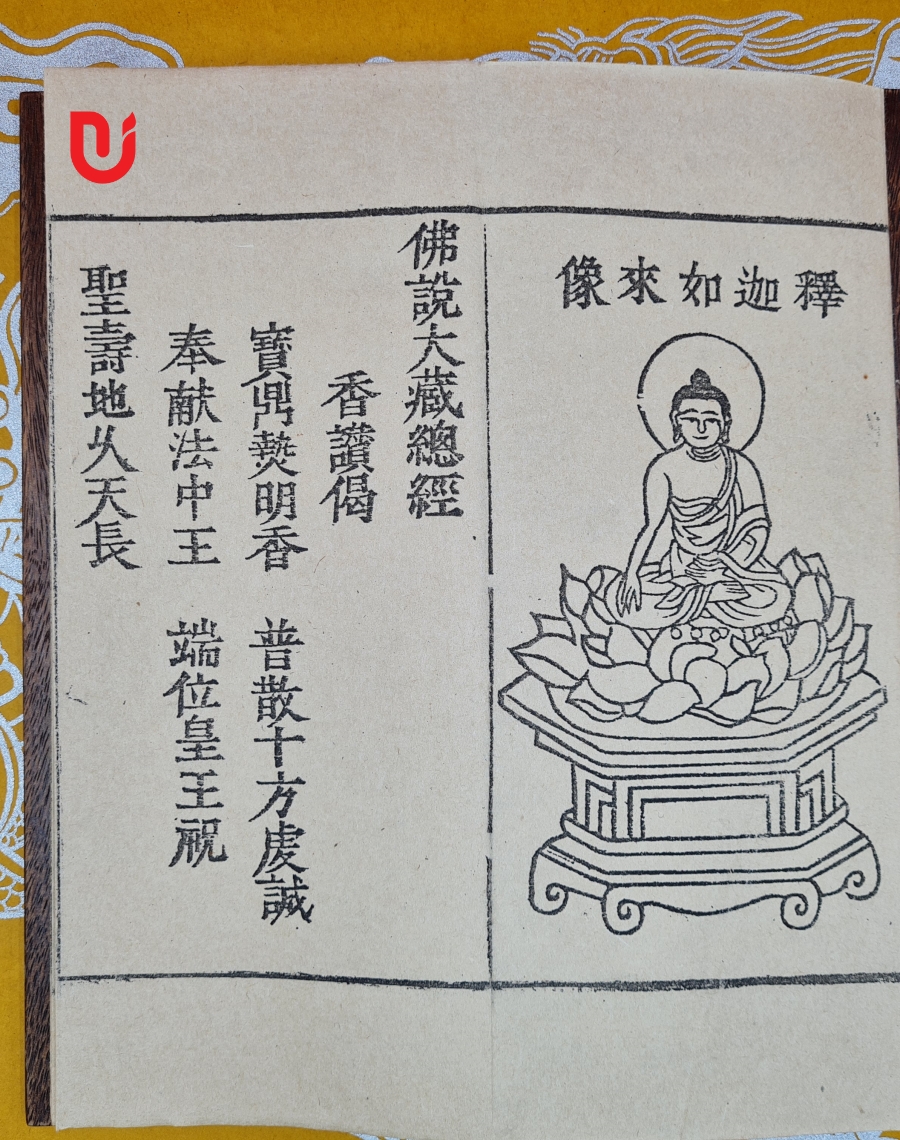 釋迦如來像
佛說大藏總經
香讚偈
寶鼎爇明香 普散十方虔誠
奉献法中王 端位皇王祝
聖壽地久天長